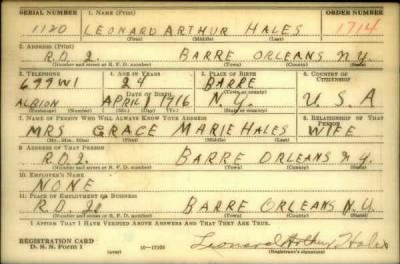 SERIAL NUMBER 1. NAME (Print) ORDER NUMBER
1120 LEONARD ARTHUR HALES 1714
(First) (Middle) (Last)
2. ADDRESS (Print)
R.D. 2. BARRE ORLEANS N.Y.
(Number and street or R. F. D. number) (Town) (County) (State)
3. TELEPHONE 4. AGE IN YEARS 5. PLACE OF BIRTH 6. COUNTRY OF CITIZENSHIP
699W1 24 BARRE
DATE OF BIRTH (Town or county)
ALBION APRIL 1916 N.Y. U.S.A
(Exchange) (Mo.) (Day) (Yr.) (State or country)
7. NAME OF PERSON WHO WILL ALWAYS KNOW YOUR ADDRESS 8. RELATIONSHIP OF THAT PERSON
MRS GRACE MARIE HALES WIFE
(Mr., Mrs., Miss) (First) (Middle) (Last)
9. ADDRESS OF THAT PERSON
R.D.2. BARRE ORLEANS N.Y.
(Number and street or R. F. D. number) (Town) (County) (State)
10. EMPLOYER'S NAME
NONE
11. PLACE OF EMPLOYMENT OR BUSINESS
R.D. 2 BARRE ORLEANS N.Y.
(Number and street or R. F. D. number) (Town) (County) (State)
I AFFIRM THAT I HAVE VERIFIED ABOVE ANSWERS AND THAT THEY ARE TRUE.
REGISTRATION CARD
D. S. S. Form 1 (over) Leonard Arthur Hales
(Registrant's signature)